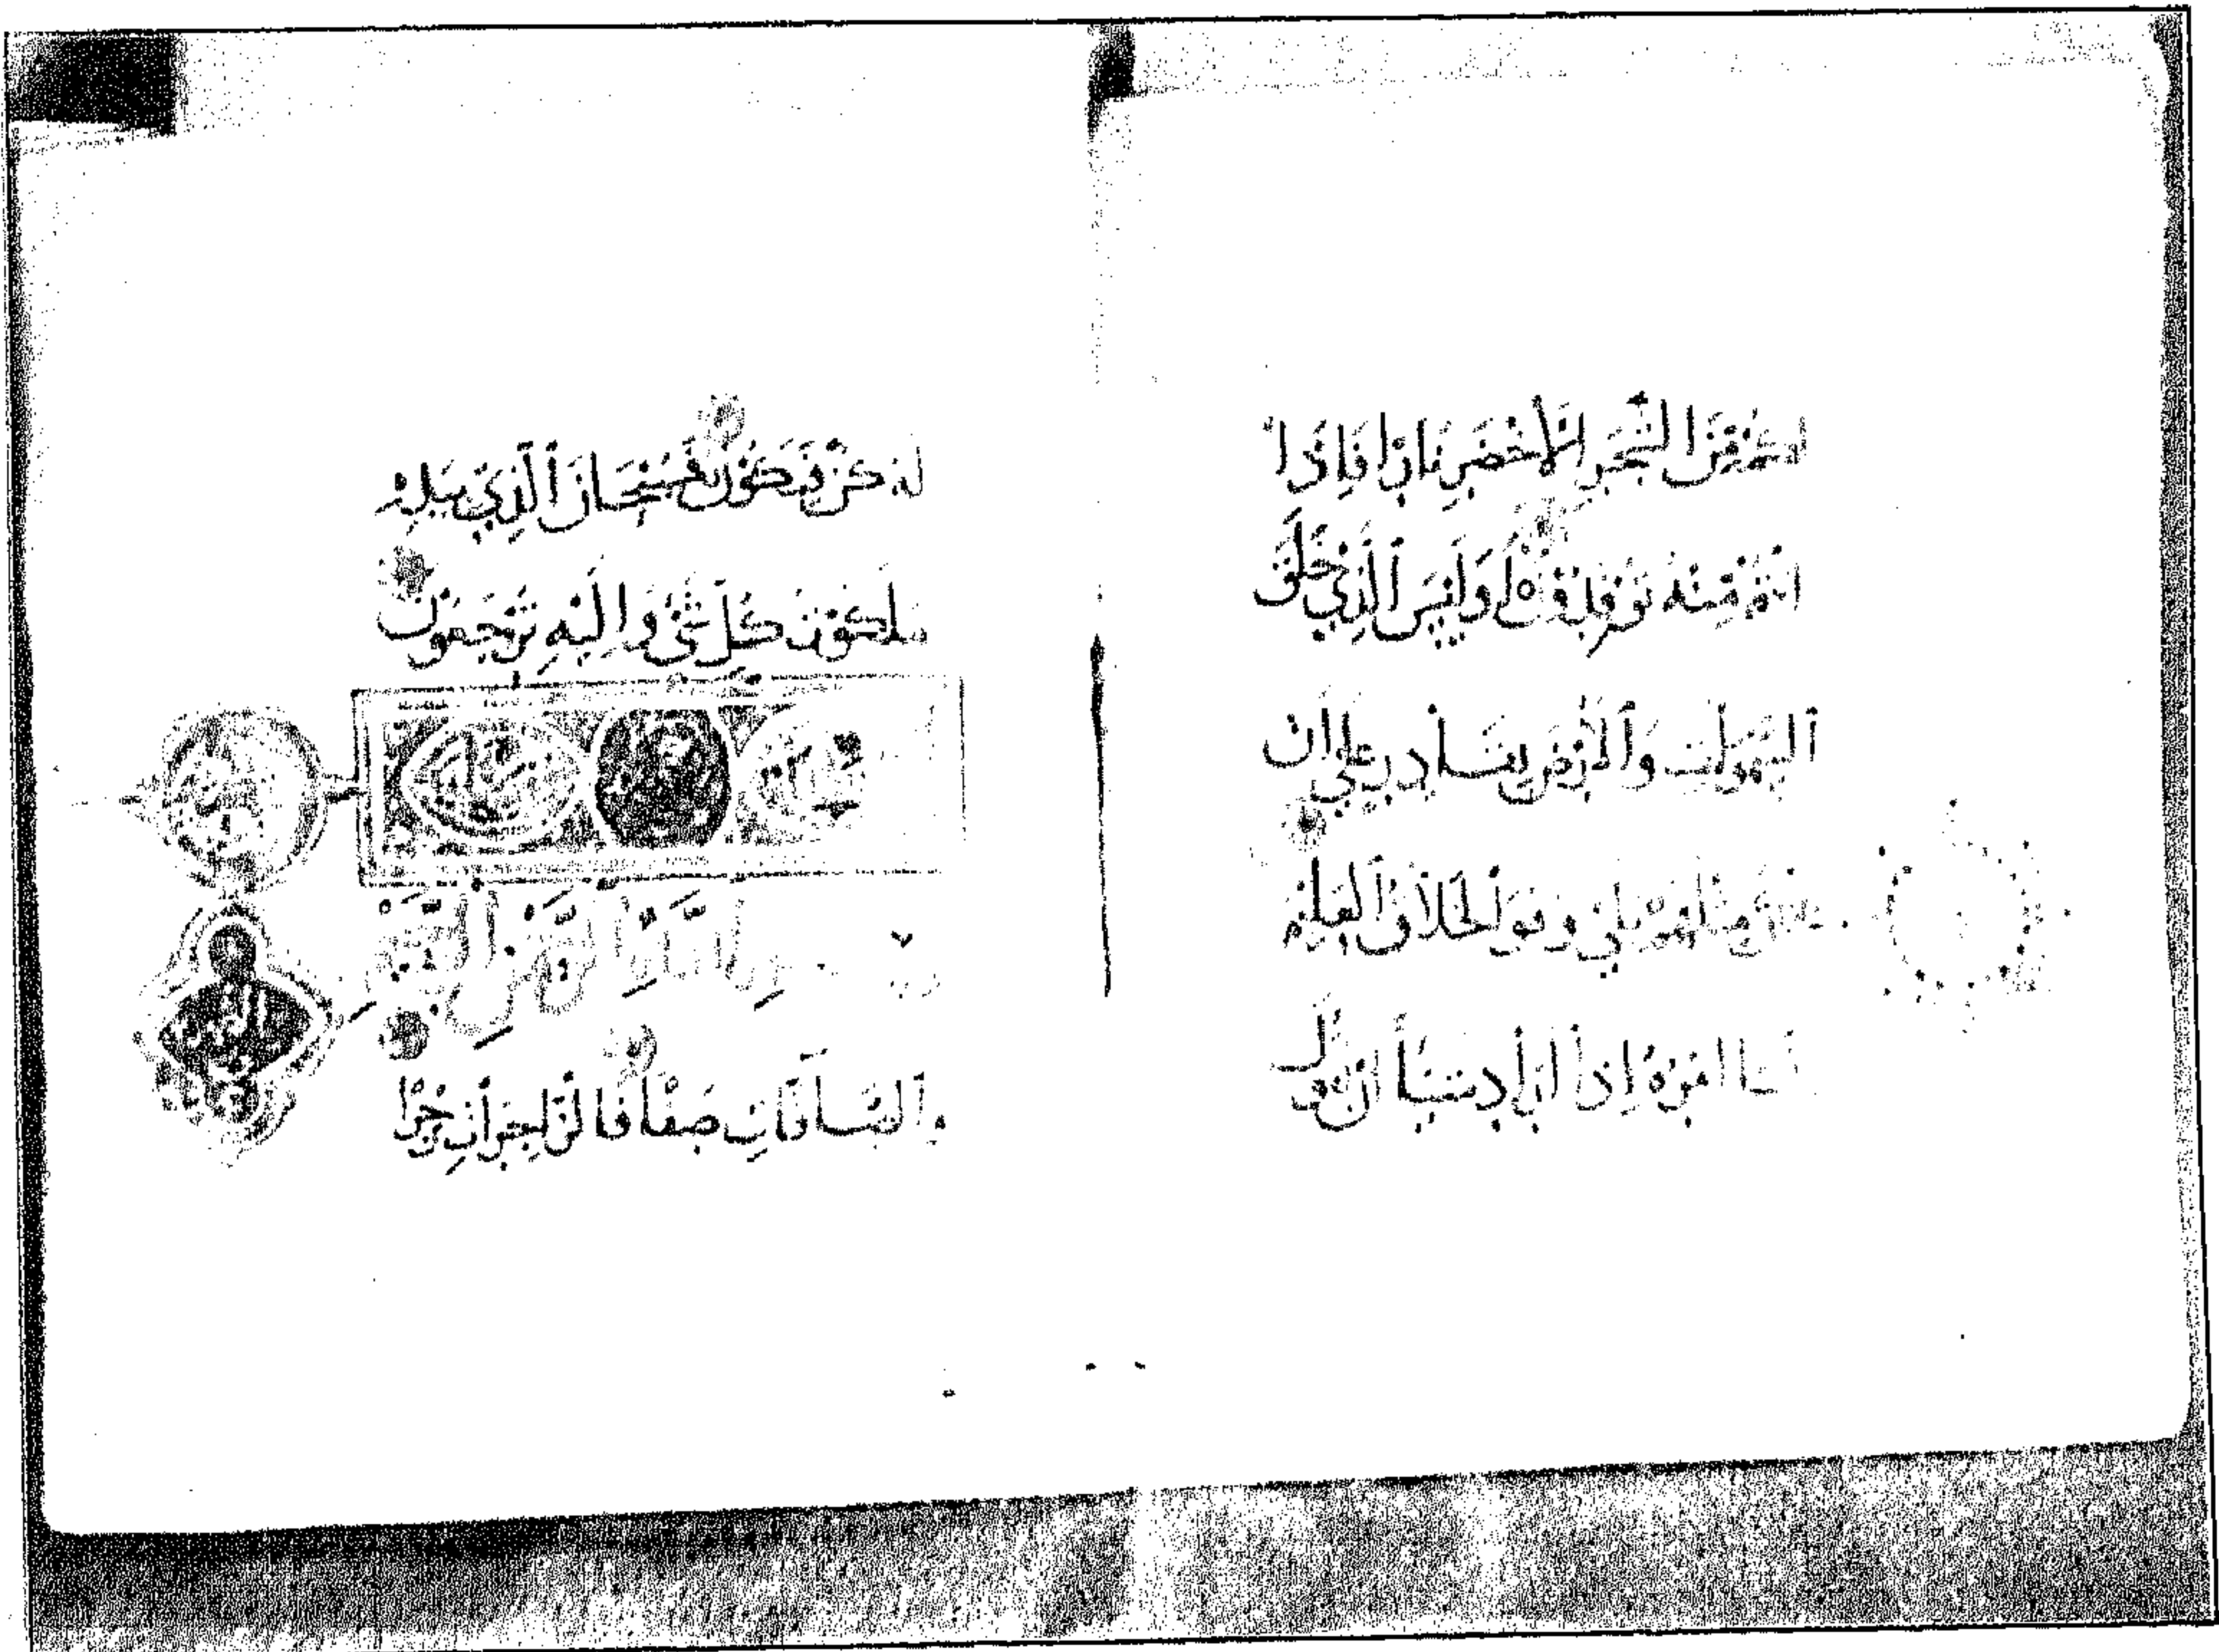 لكم من الشجر الأخضر نارا فاذا
انتم منه توقدون أوليس ٱلذي خلق
ٱلسموات وٱلأرض بقادر على أن
يخلق مثلهم بلى وهو ٱلخلاق ٱلعليم
انما امره إذا أراد شيئا ان يقول
له كن فيكون فسبحان ٱلذي بيده
ملكوت كل شئ وإليه ترجعون
بسم ٱلله ٱلرحمن ٱلرحيم
وٱلصافات صفا فالزاجرات زجرا